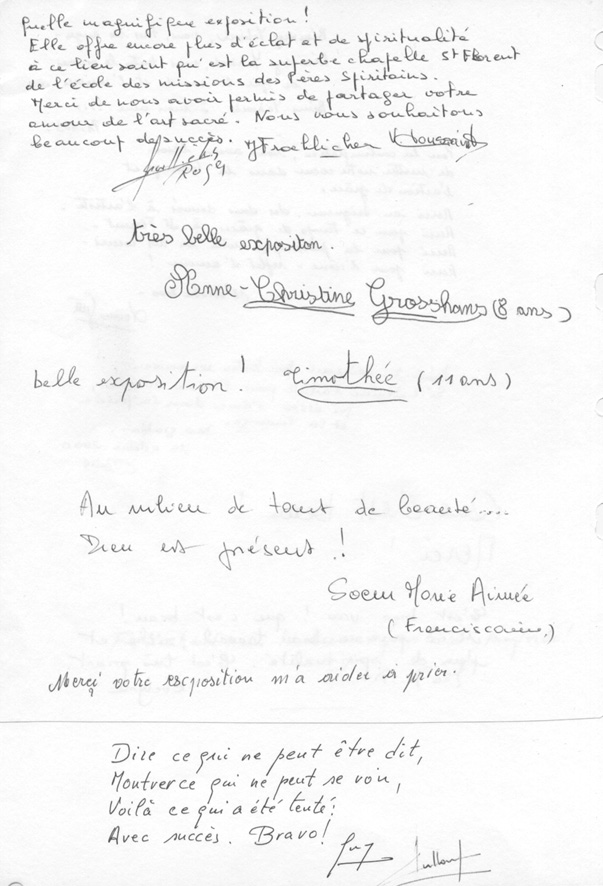 Quelle magnifique exposition !
Elle offre encore plus d'éclat et de spiritualité
à ce lieu saint qu'est la superbe chapelle St Florent
de l'école des missions des Pères Spiritains.
Merci de nous avoir permis de partager votre
amour de l'art sacré. Nous vous souhaitons
beaucoup de succès. Froehlicher
Roger
très belle expositon.
Anne-Christine Grosshans (8 ans)
belle exposition ! Timothée (11 ans)
Au milieu de tant de beauté....
Dieu est présent !
Soeur Marie Aimée
(Franciscaine)
Merci votre escposition m'a aider à prier.
Dire ce qui ne peut être dit,
Montrer ce qui ne peut se voir,
Voilà ce qui a été tenté !
Avec succès. Bravo !
Guy